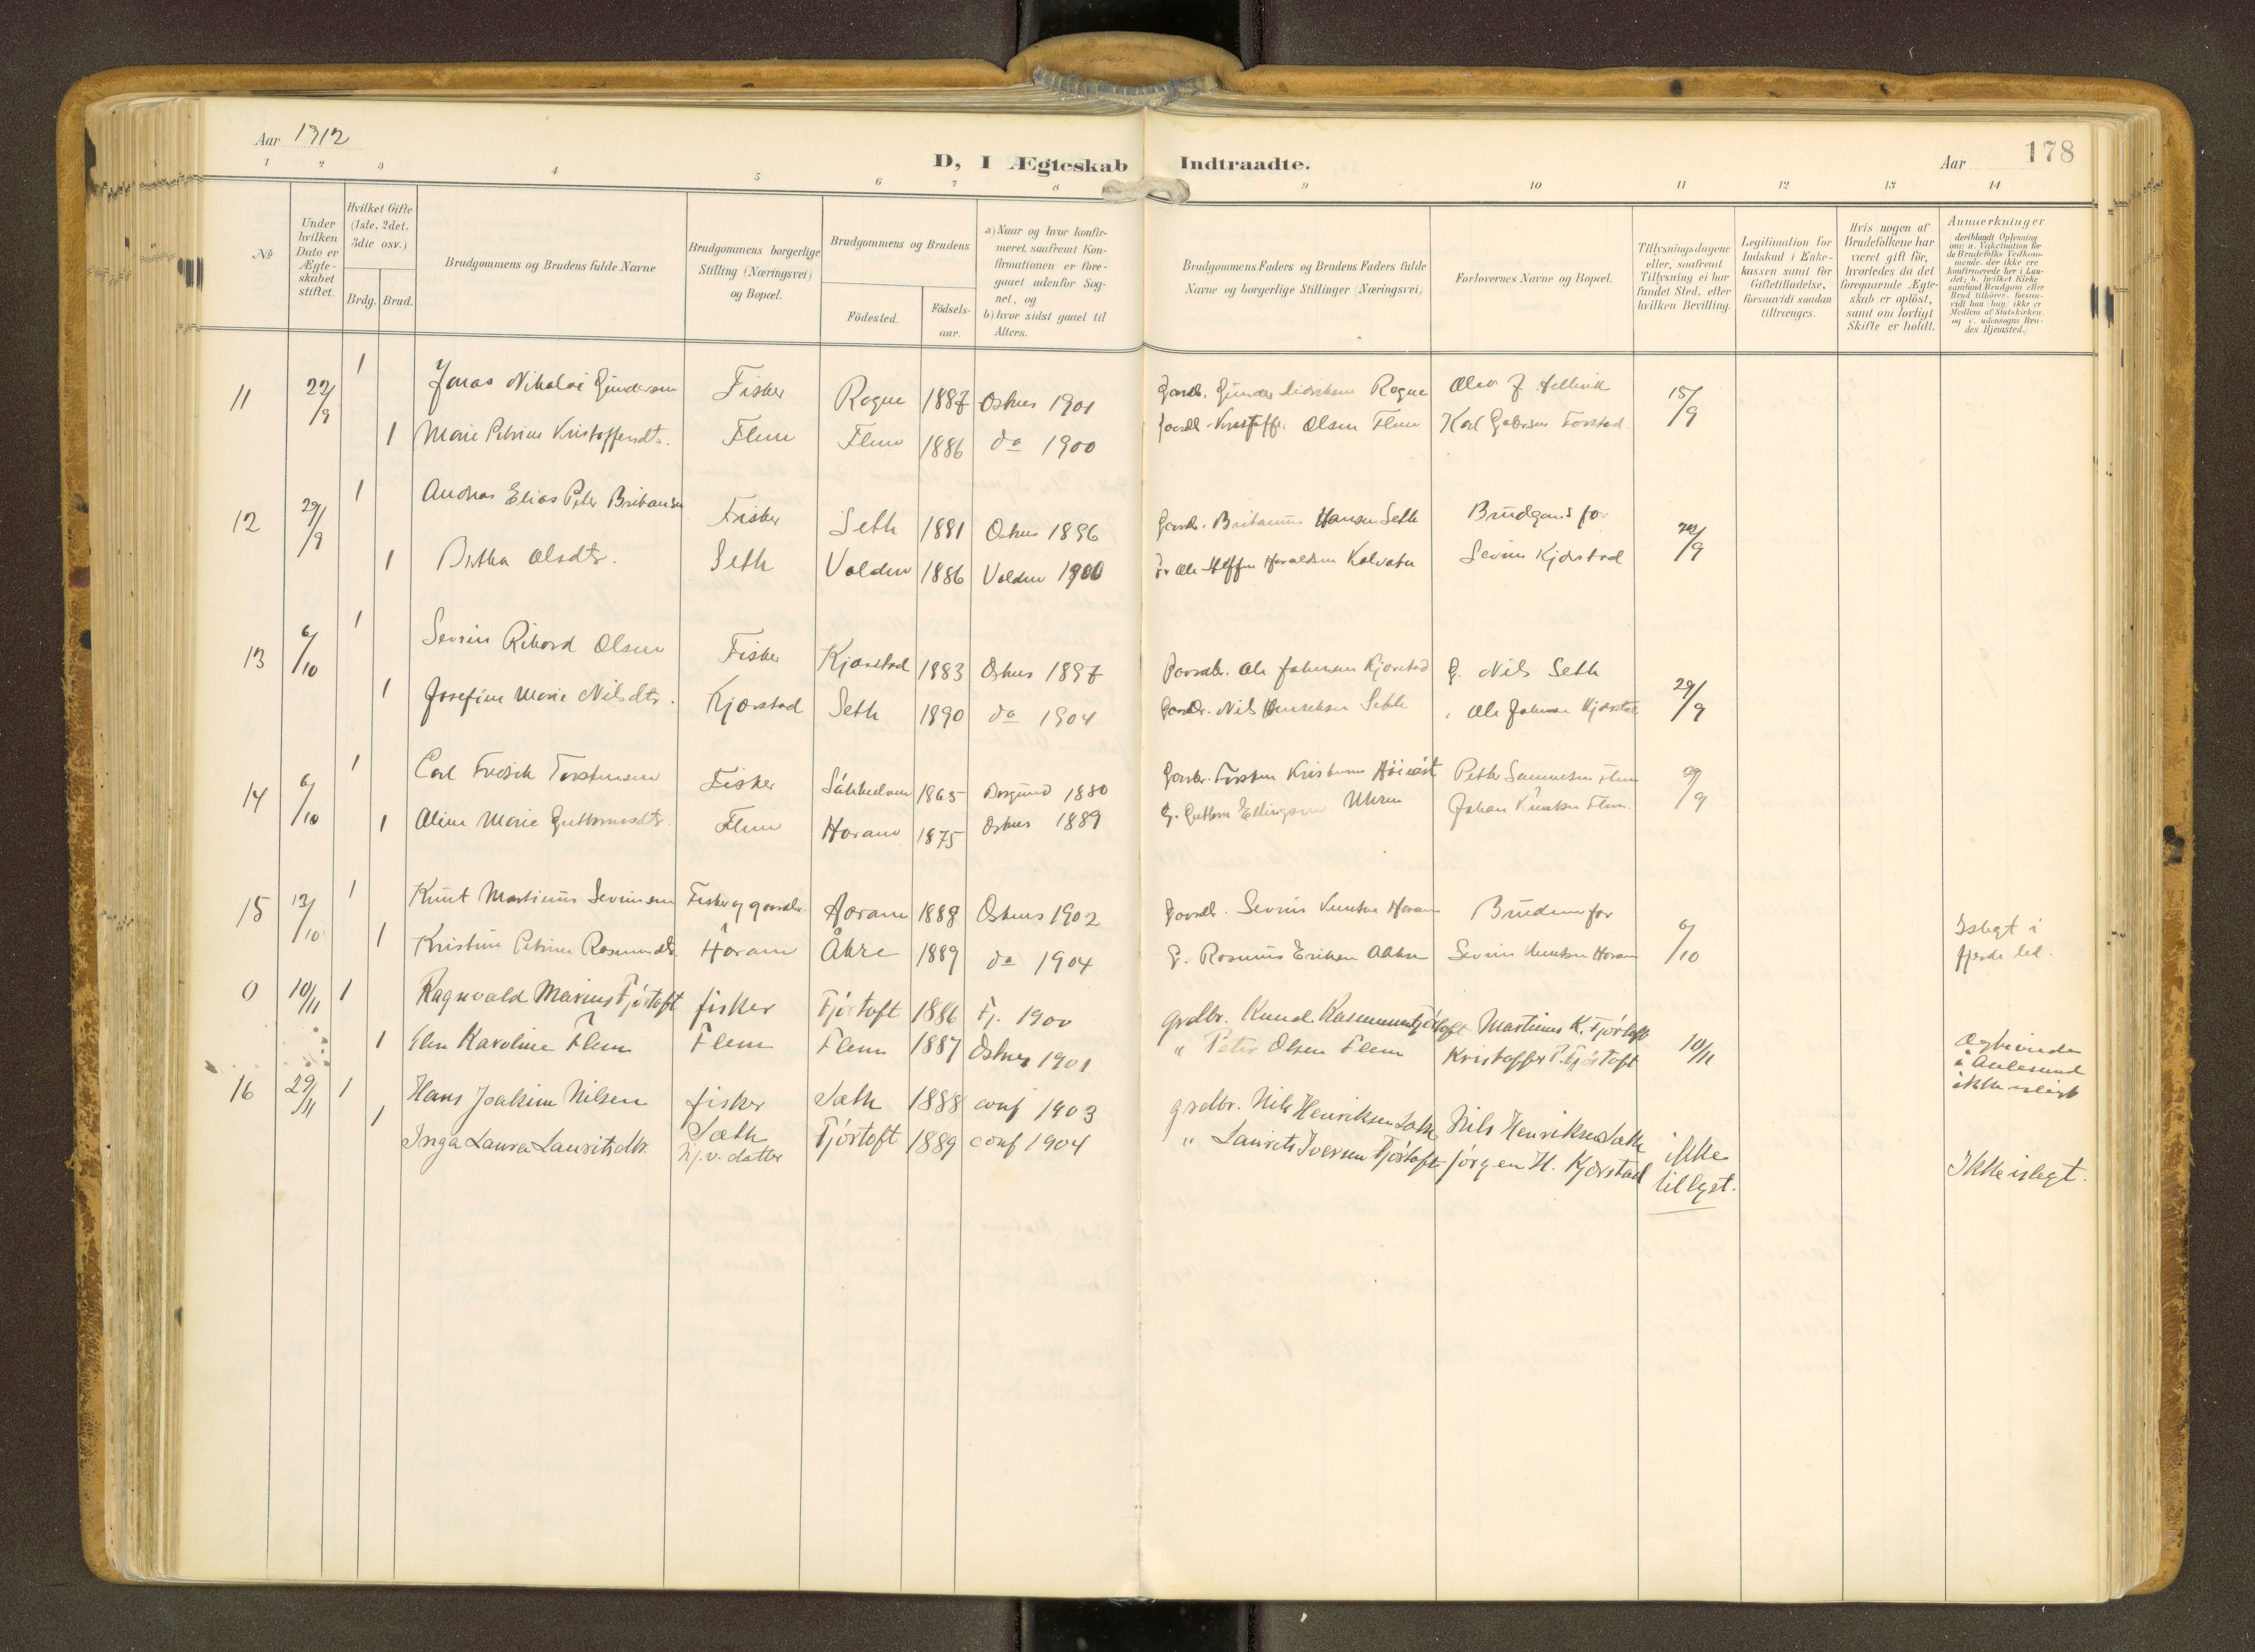 Aar 1912
D, I Ægteskab Indtraadte.
Aar 178
1 2 3 4 5 6 7 8 9 10 11 12 13 14
No
Under hvilken Dato er Ægteskabet stiftet.
Hvilket Gifte (1ste, 2det, 3die osv.)
Brdg. Brud.
Brudgommens og Brudens fulde Navne
Brudgommens borgerlige Stilling (Næringsvei) og Bopæl.
Brudgommens og Brudens
Födested. Födsels-aar.
a) Naar og hvor konfirmeret, saafremt Konfirmationen er foregaaet udenfor Sognet, og
b) hvor sidst gaaet til Alters.
Brudgommens Faders og Brudens Faders fulde Navne og borgerlige Stillinger (Næringsvei)
Forlovernes Navne og Bopæl.
Tillysningsdagene eller, saafremt Tillysning ei har fundet Sted, efter hvilken Bevilling.
Legitimation for Indskud i Enkekassen samt for Giftetilladelse, forsaavidt saadan tiltrænges.
Hvis nogen af Brudefolkene har været gift för, hvorledes da det foregaaende Ægteskab er oplöst, samt om lovligt Skifte er holdt.
Anmærkninger
deriblandt Oplysning om: a. Vakcination for de Brudefolks Vedkommende, der ikke ere konfirmerede her i Landet; b. hvilket Kirkesamfund Brudgom eller Brud tilhører, forsaavidt han (hun) ikke er Medlem af Statskirken, og c. udensogns Brudes Hjemsted.
11 22/9 1 Jonas Nikolai Gundersen Fisker Rogne 1887 Oshus 1901 Gaardb. Gunder Didriksen Rogne Olav J Hellevik 15/9
1 Marie Petrine Kristoffersdtr. Flem Flem 1886 do 1900 Gaardb. Kristoffer Olsen Flem Karl Gabersen Forstad.
12 29/9 1 Andreas Elias Peter Britansen Fisker Seth 1881 Oshus 1896 Gaardb. Britanus Hansen Seth Brudgoms far 22/9
1 Birtha Olsdtr. Seth Volden 1886 Volden 1900 Kalvatn Sevrin Kjørstad
13 6/10 1 Sevrin Rikard Olsen Fisker Kjørstad 1883 Oshus 1897 Gaardbr. Ole Johansen Kjørstad G. Nils Seth 29/9
1 Josefine Marie Nilsdtr. Kjørstad Seth 1890 do 1904 Gaardbr. Nils Henriksen Seth Ole Johansen Kjørstad
14 6/10 1 Carl Fredrik Torstensen Fisker 1865 Borgund 1880 Gaardbr. Torsten Kristensen Peter Samuelsen Flem 29/9
1 Oline Marie Guttormsdtr. Flem Haram 1875 Oshus 1889 G. Guttorm Ellingsen Uhren Johan Knutsen Flem.
15 13/10 1 Knut Martinus Sevrinsen Fisker og gaardbr. Haram 1888 Oshus 1902 Gaardb. Sevrin Knutsen Haram Brudens far 6/10
1 Kristine Petrine Rasmusdtr. Haram Åkre 1889 do 1904 G. Rasmus Eriksen Aakre Sevrin Knutsen Haram
I slegt i fjerde led.
0 10/11 1 Ragnvald Marius Fjørtoft fisker Fjørtoft 1886 Fj. 1900 grdbr. Knud Rasmussen Fjørtoft Martinus K. Fjørtoft 10/11
1 Elen Karoline Flem Flem Flem 1887 Østnes 1901 " Peter Olsen Flem Kristoffer P. Fjørtoft
Ægteviede i Aalesund ikke islegt
16 29/11 1 Hans Joakim Nilsen fisker Sæth 1888 conf 1903 grdbr. Nils Henriksen Sæth Nils Henriksen Sæth ikke
1 Inga Laura Lauritsdtr. Sæth hj.v. datter Fjørtoft 1889 conf 1904 " Laurits Iversen Fjørtoft Jørgen H. Kjørstad tillyst.
Ikke islegt.